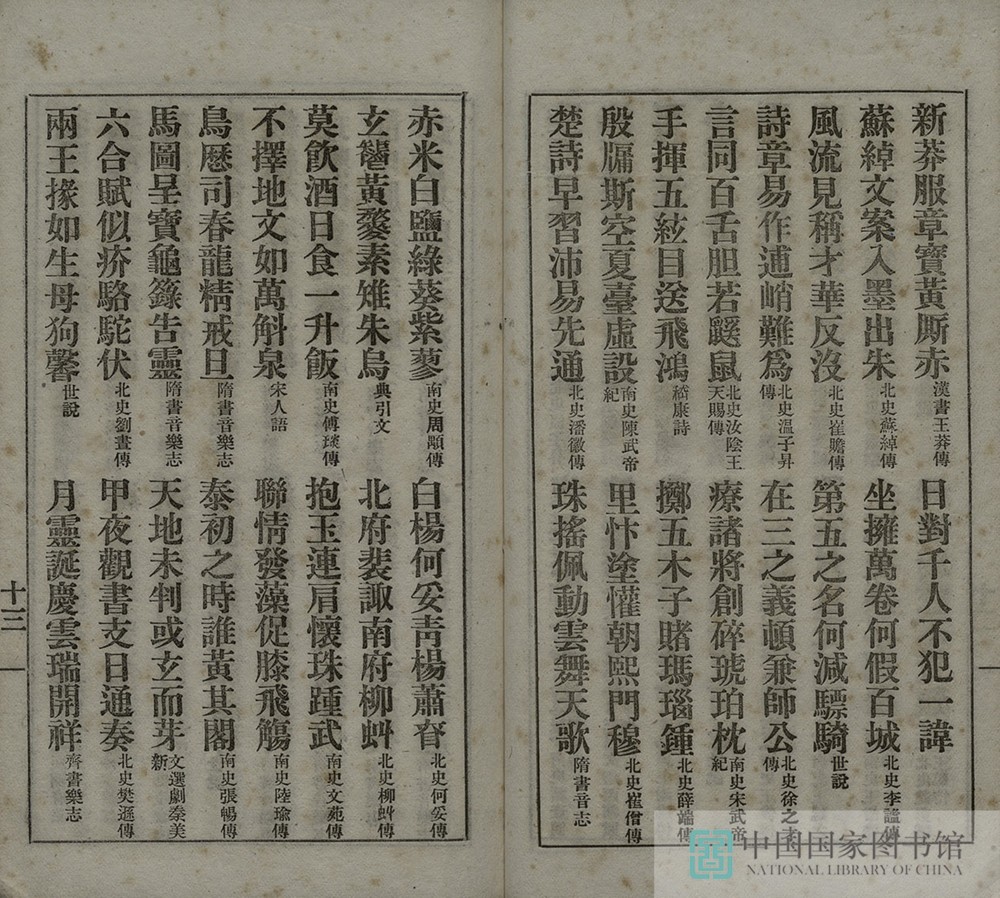 新莽服章寶黃厮赤 漢書王莽傳 日對千人不犯一諱
蘇綽文案入墨出朱 北史蘇綽傳 坐擁萬卷何假百城 北史李謐傳
風流見稱才華反沒 北史崔贍傳 第五之名何減驃騎 世說
詩章易作逋峭難為 北史溫子昇傳 在三之義頓兼師公 北史徐之才傳
言同百舌胆若鼷鼠 北史汝陰王天賜傳 療諸將創碎琥珀枕 南史宋武帝紀
手揮五絃目送飛鴻 嵇康詩 擲五木子賭瑪瑙鍾 北史薛端傳
殷牖斯空夏臺虛設 南史陳武帝紀 里忭塗懽朝熙門穆 北史崔僧傳
楚詩早習沛易先通 北史潘徽傳 珠搖佩動雲舞天歌 隋書音志
赤米白鹽綠葵紫蓼 南史周顒傳 白楊何妥青楊蕭眘 北史何妥傳
玄秬黃麰素雉朱烏 典引文 北府裴諏南府柳虯 北史柳虯傳
莫飲酒日食一升飯 南史傅琰傳 抱玉連肩懷珠踵武 南史文苑傳
不擇地文如萬斛泉 宋人語 聯情發藻促膝飛觴 南史陸瑜傳
鳥歷司春龍精戒旦 隋書音樂志 泰初之時誰黃其閣 南史張暢傳
馬圖呈寶龜籙告靈 隋書音樂志 天地未判或玄而芽 文選劇秦美新
六合賦似疥駱駝伏 北史劉晝傳 甲夜觀書支日通奏 北史樊遜傳
兩王掾如生母狗馨 世說 月靈誕慶雲瑞開祥 齊書樂志
十三
中国国家图书馆
NATIONAL LIBRARY OF CHINA